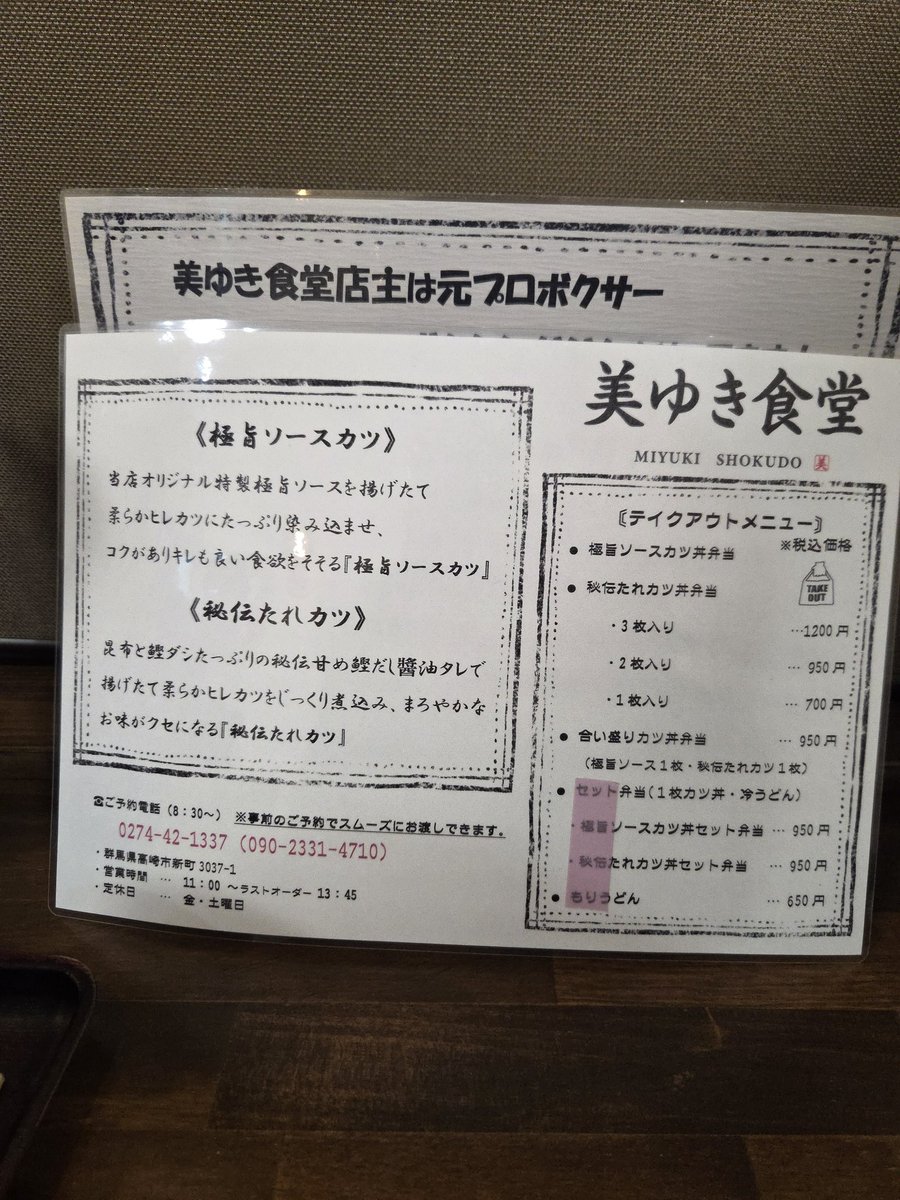 美ゆき食堂店主は元プロボクサー
《極旨ソースカツ》
当店オリジナル特製極旨ソースを揚げたて
柔らかヒレカツにたっぷり染み込ませ、
コクがありキレも良い食欲をそそる『極旨ソースカツ』
《秘伝たれカツ》
昆布と鰹ダシたっぷりの秘伝甘め鰹だし醬油タレで
揚げたて柔らかヒレカツをじっくり煮込み、まろやかな
お味がクセになる『秘伝たれカツ』
☎ご予約電話（8：30～） ※事前のご予約でスムーズにお渡しできます。
0274-42-1337（090-2331-4710）
・群馬県高崎市新町3037-1
・営業時間 … 11：00 ～ラストオーダー 13：45
・定休日 … 金・土曜日
美ゆき食堂
MIYUKI SHOKUDO 美
〔テイクアウトメニュー〕
※税込価格
● 極旨ソースカツ丼弁当
● 秘伝たれカツ丼弁当
TAKE
OUT
・3枚入り …1200円
・2枚入り … 950円
・1枚入り … 700円
● 合い盛りカツ丼弁当 … 950円
（極旨ソース1枚・秘伝たれカツ1枚）
● セット弁当（1枚カツ丼・冷うどん）
・極旨ソースカツ丼セット弁当 … 950円
・秘伝たれカツ丼セット弁当 … 950円
● もりうどん … 650円